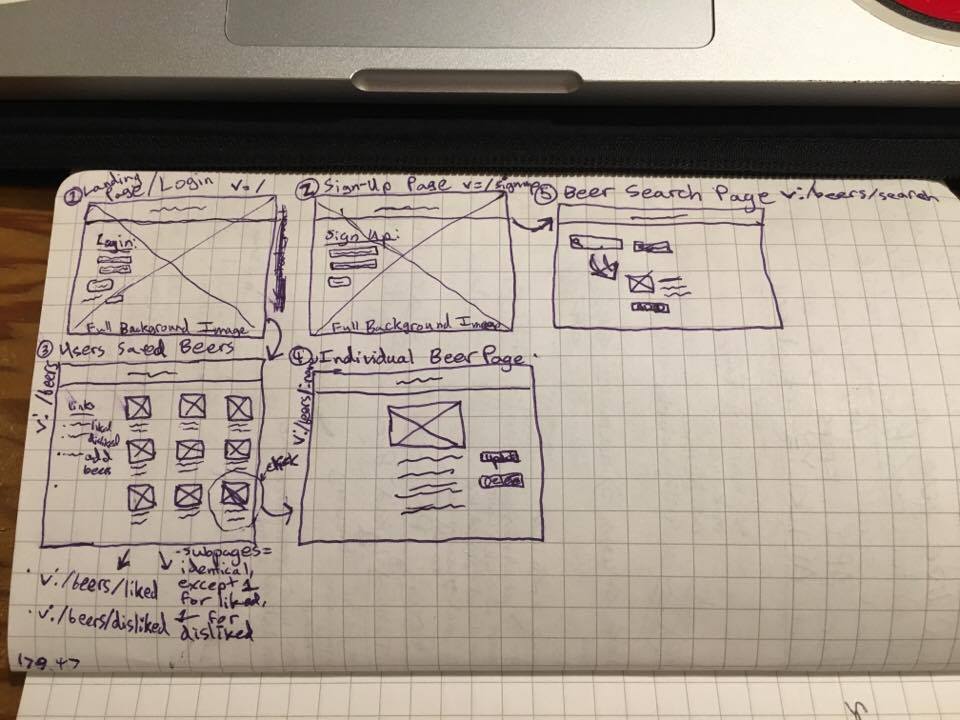 ① Landing Page/Login v=/
Login:
Full Background Image
② Sign-Up Page v=/signup
Sign Up:
Full Background Image
⑤ Beer Search Page v:/beers/search
③ Users Saved Beers
v:/beers
Links
liked
disliked
add beers
click
④ Individual Beer Page
v:/beers/:name
Update
Delete
· v:/beers/liked
· v:/beers/disliked
-subpages=
identical,
except 1
for liked,
1 for
disliked